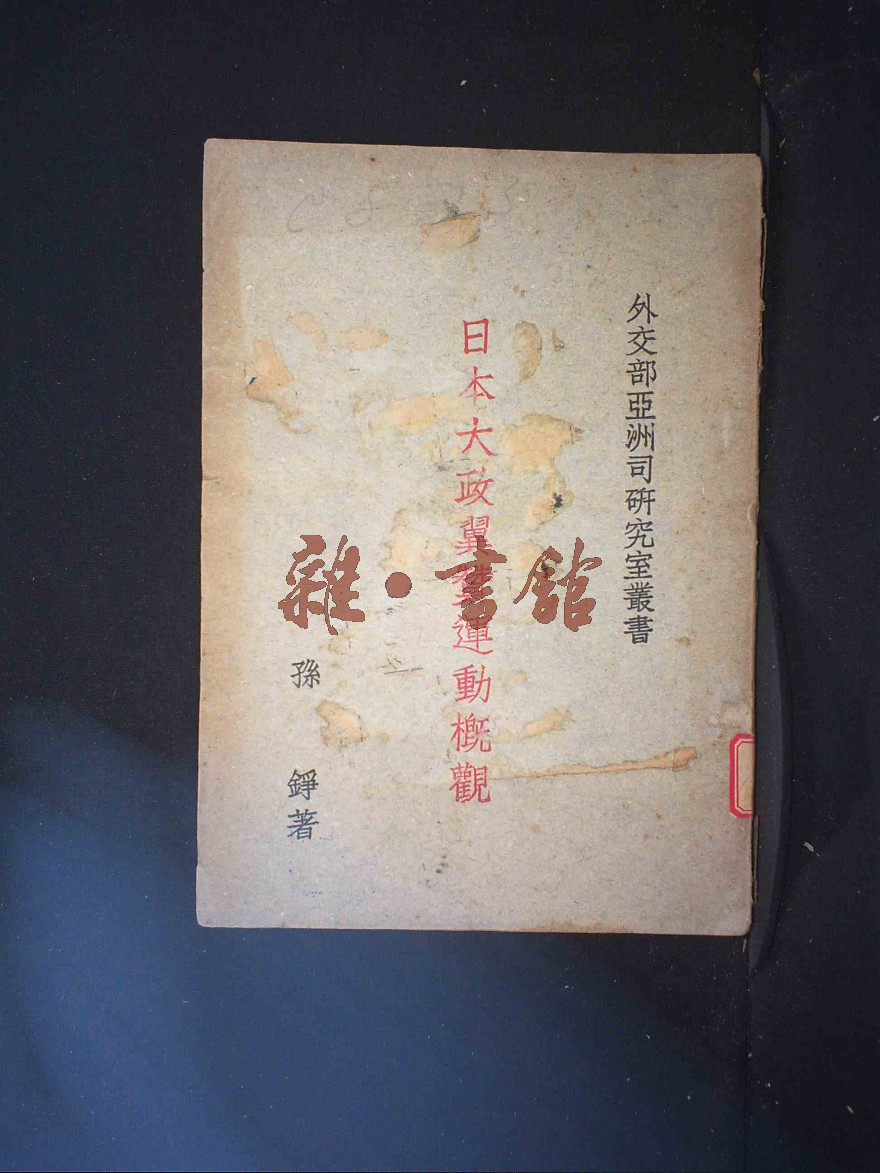 外交部亞洲司研究室叢書
日本大政翼贊運動概觀
孫錚著
雜·書館